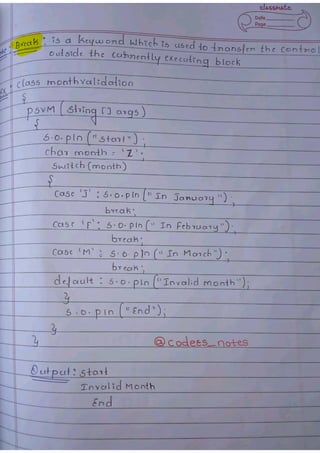 classmate
Date
Page
Break : is a keyword which is used to transfer the control
outside the currently executing block
class monthvalidation
{
psvm ( String [] args)
{
s.o.pln ("start");
char month = 'Z';
Switch (month)
{
case 'J' : s.o.pln (" In January");
break;
case 'F' : s.o.pln (" In February");
break;
case 'M' : s.o.pln (" In March");
break;
default : s.o.pln ("Invalid month");
}
s.o.pln ("End");
}
}
@codees_notes
Output : Start
Invalid Month
End